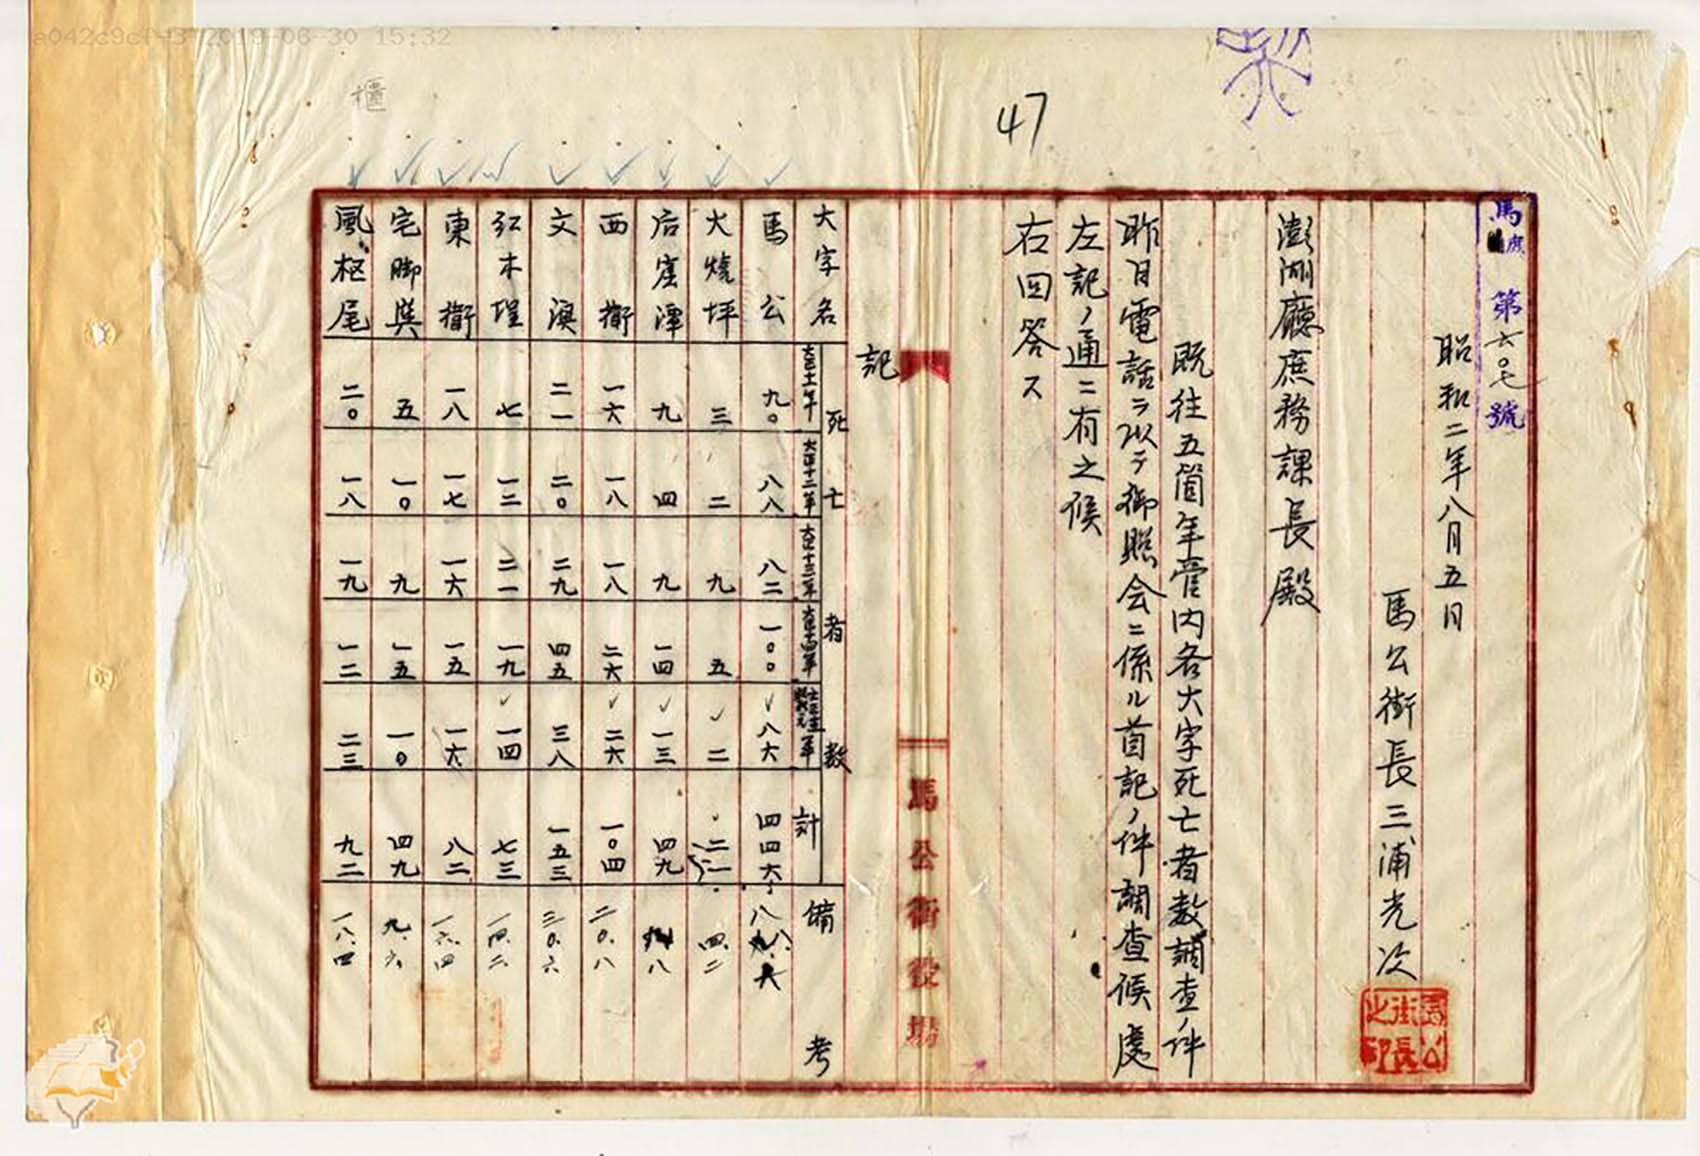 a042c9cf-f3 2019-06-30 15:32
櫃
47
馬庶 第六〇七號
昭和二年八月五日
馬公街長三浦光次
馬公街長之印
澎湖廳庶務課長殿
既往五箇年管內各大字死亡者數調查ノ件
昨日電話ヲ以テ御照会ニ係ル首記ノ件調查候處
左記ノ通ニ有之候
右回答ス
馬公街役場
記
大字名 死亡者數 大正十一年 大正十二年 大正十三年 大正十四年 計 備考
馬公 九〇 八八 八二 一〇〇 八六 四四六
火燒坪 三 二 九 五 二 二一 四.二
后窟潭 九 四 九 一四 一三 四九 九.八
西衛 一六 一八 一八 二六 二六 一〇四 二〇.八
文澳 二一 二〇 二九 四五 三八 一五三 三〇.六
紅木埕 七 一二 二一 一九 一四 七三 一四.二
東衛 一八 一七 一六 一五 一六 八二 一六.四
宅腳嶼 五 一〇 九 一五 一〇 四九 九.六
風柜尾 二〇 一八 一九 一二 二三 九二 一八.四